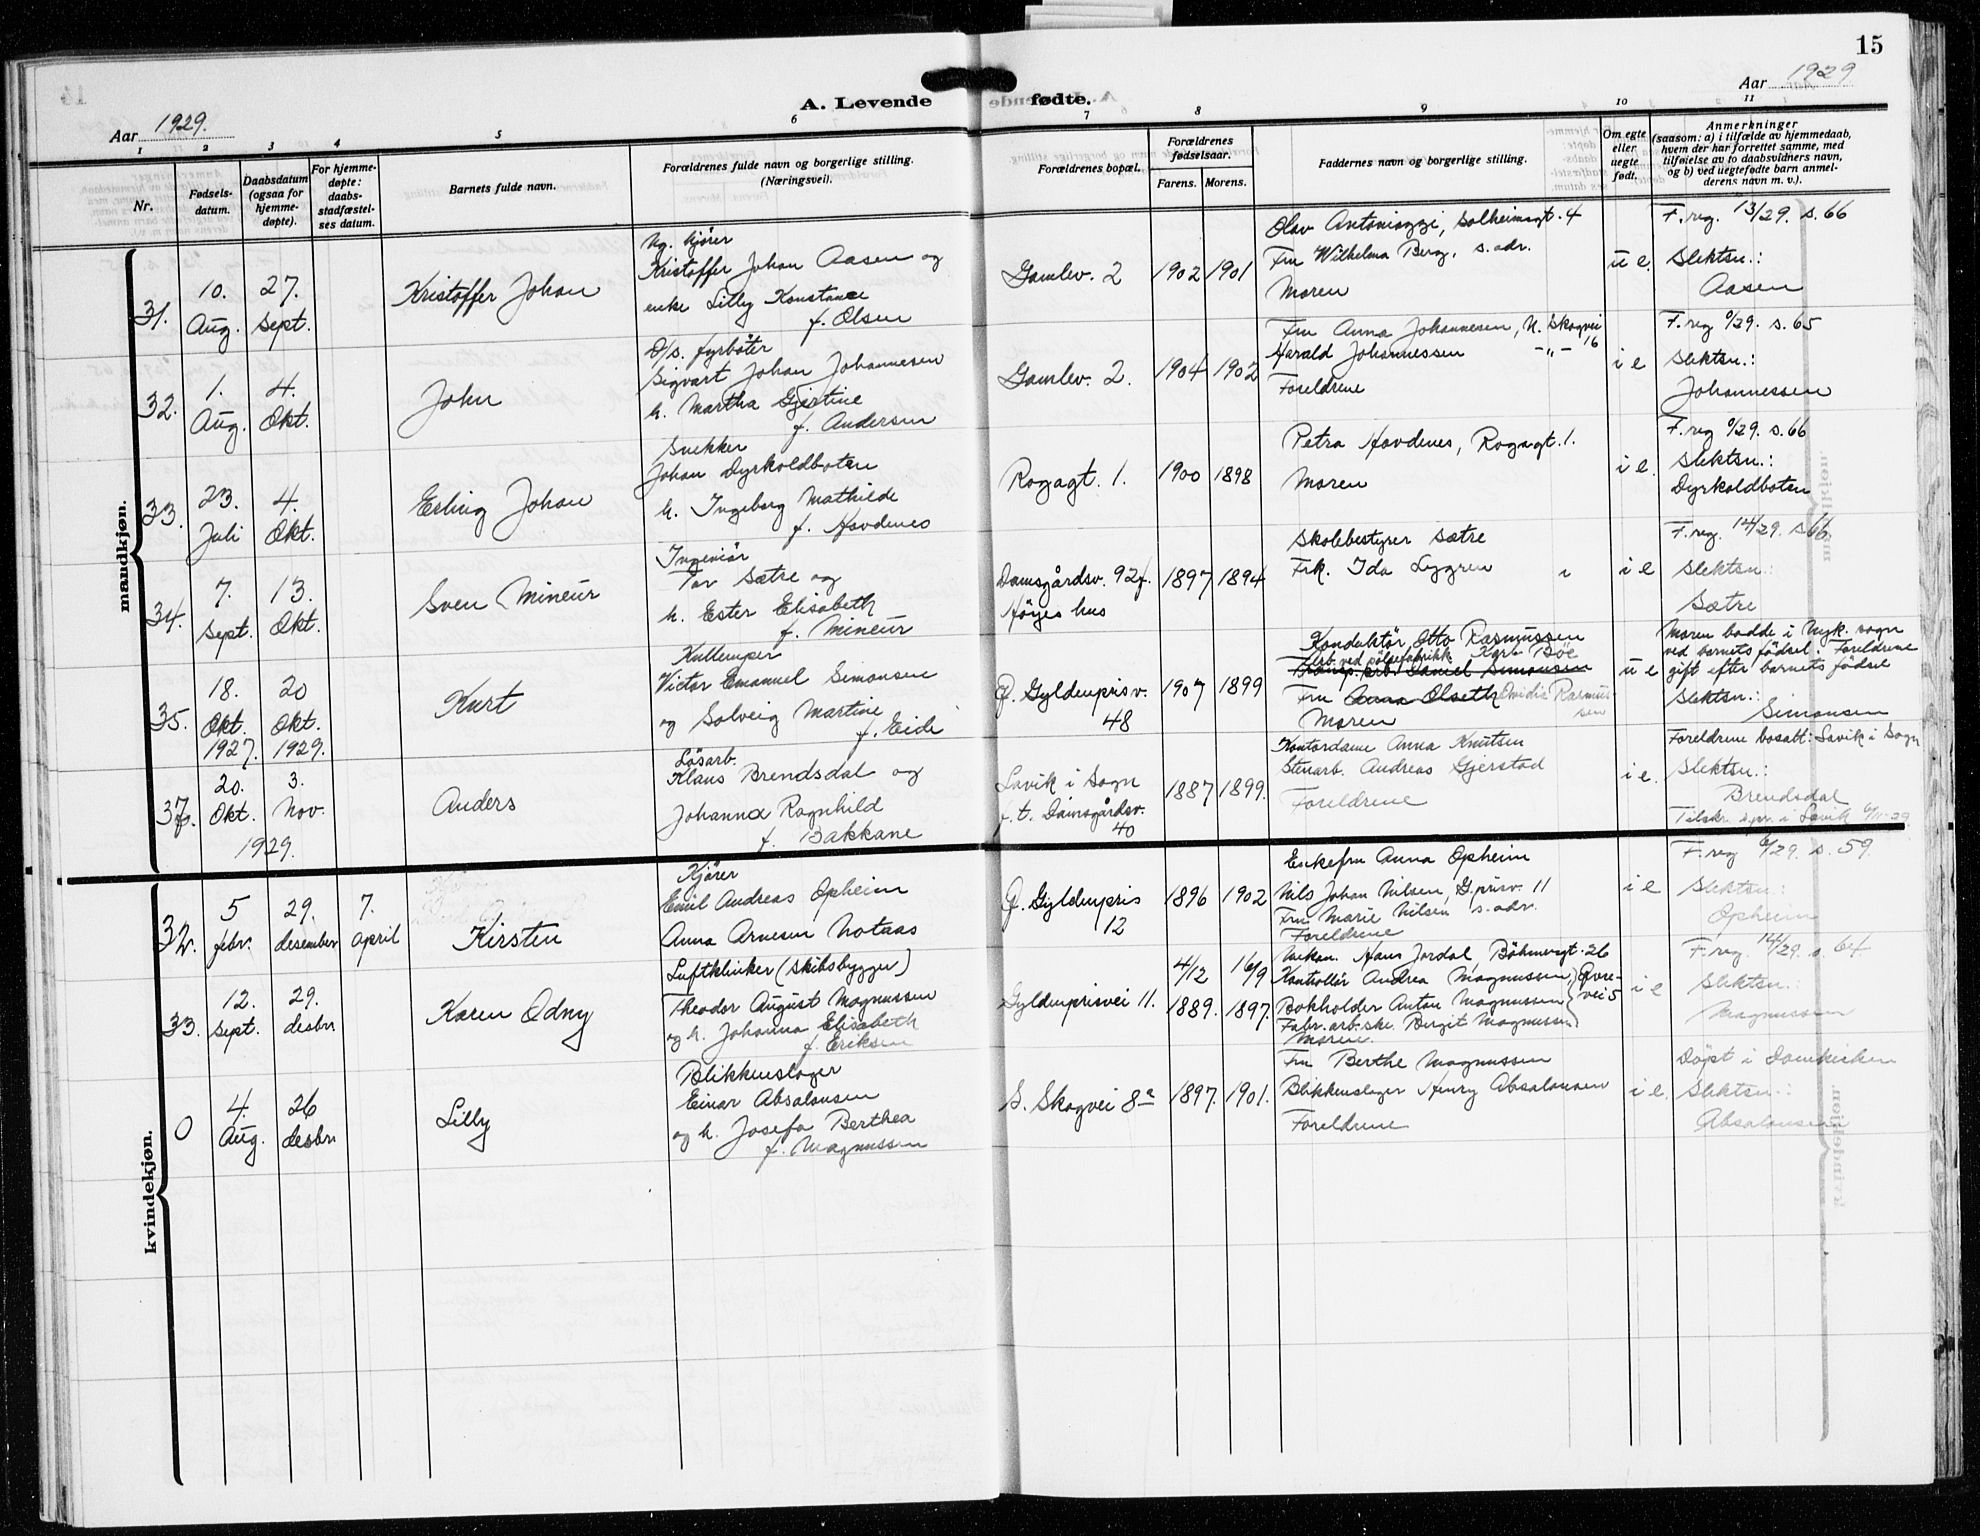 15
Aar 1929.
A. Levende fødte.
Aar 1929
1 2 3 4 5 6 7 8 9 10 11
Nr.
Fødsels-
datum.
Daabsdatum
(ogsaa for
hjemme-
døpte).
For hjemme-
døpte:
daabs-
stadfæstel-
ses datum.
Barnets fulde navn.
Forældrenes fulde navn og borgerlige stilling.
(Næringsvei).
Forældrenes bopæl.
Forældrenes
fødselsaar.
Farens. Morens.
Faddernes navn og borgerlige stilling.
Om egte
eller
uegte
født.
Anmerkninger
(saasom: a) i tilfælde av hjemmedaab,
hvem der har forrettet samme, med
tilføielse av to daabsvidners navn,
og b) ved uegtefødte barn anmel-
derens navn m. v.).
mandkjøn.
31.
10.
Aug.
27.
Sept.
Kristoffer Johan
Ug. kjører
Kristoffer Johan Aasen og
enke Lilly Konstance
f. Olsen
Gamlev. 2
1902 1901
Olav Antoniazzi, Solheimsgt. 4
Fru Wilhelma Berg, s. adr.
Moren
u e.
F. reg. 13/29. s. 66
Slektsn.:
Aasen
32.
1.
Aug.
4.
Okt.
John
D/s. fyrbøter
Sigvart Johan Johannesen
h. Martha Gjertine
f. Andersen
Gamlev. 2.
1904 1902
Fru Anna Johannesen, N. Skogvei
16
Harald Johannessen -"-
Foreldrene
i e
F. reg 9/29. s. 65
Slektsn.:
Johannessen
33.
23.
Juli
4.
Okt.
Erling Johan
Snekker
Johan Dyrkoldboten
h. Ingeborg Mathilde
f. Hovdenes
Rogagt. 1.
1900 1898
Petra Hovdenes, Rogagt. 1.
Moren
i e.
F. reg 9/29. s. 66
Slektsn.:
Dyrkoldboten
34.
7.
Sept.
13.
Okt.
Sven Mineur
Ingeniør
Tor Sætre og
h. Ester Elisabeth
f. Mineur
Damsgårdsv. 92f.
Høyes hus
1897 1894
Skolebestyrer Sætre
Frk. Ida Lyggren
i e
F. reg. 14/29. s 66
Slektsn.:
Sætre
35.
18.
Okt.
1927.
20
Okt.
1929.
Kurt
Kullemper
Victor Emanuel Simonsen
og Solveig Martine
f. Eide
Ø. Gyldenprisv.
48
1907 1899
Konduktør Otto Rasmussen
Arb. ved pølsefabrikk Karl Bøe
Fru Anna Olseth Ovidia Rasmus-
sen
Moren
u e
Moren bodde i Nyk. sogn
ved barnets fødsel. Foreldrene
gift efter barnets fødsel
Slektsn.:
Simonsen
37.
20.
Okt.
3.
Nov.
1929.
Anders
Løsarb.
Klaus Brendsdal og
Johanna Ragnhild
f. Bakkane
Lavik i Sogn
f. t. Damsgårdsv.
40
1887 1899.
Kontordame Anna Knutsen
Stenarb. Andreas Gjerstad
Foreldrene
i e.
Foreldrene bosatt: Lavik i Sogn
Slektsn.:
Brendsdal
Tilskr. spr. i Lavik 6/11-29.
kvindekjøn.
32.
5
febr.
29.
desember
7.
April
Kirsten
Kjører
Emil Andreas Opheim
Anna Arnesen Notnas
Ø. Gyldenpris
12
1896 1902
Enkefru Anna Opheim
Nils Johan Nilsen, G.prisv. 11
Fru Marie Nilsen s. adr.
Foreldrene
i e
F. reg 9/29. s. 59.
Slektsn.:
Opheim
33.
12.
Sept.
29.
desbr.
Karen Odny
Luftklinker (skibsbygger)
Theodor August Magnussen
og h. Johanna Elisabeth
f. Eriksen
Gyldenprisvei 11.
4/12 16/9
1889. 1897.
Mekan. Hans Jordal, Bøhmergt. 26
Kontollør Andrea Magnussen, Øvre-
Bokholder Anton Magnussen vei 5
Fabr. arb.ske. Birgit Magnussen
Moren.
i e
F. reg. 14/29. s. 64
Slektsn.:
Magnussen
0
4.
Aug.
26
desbr.
Lilly
Blikkenslager
Einar Absalonsen
og h. Josefa Berthea
f. Magnussen
S. Skogvei 8a
1897. 1901.
Fru Berthe Magnussen
Blikkenslager Henry Absalonsen
Foreldrene
i e.
Døpt i Domkirken
Slektsn.:
Absalonsen